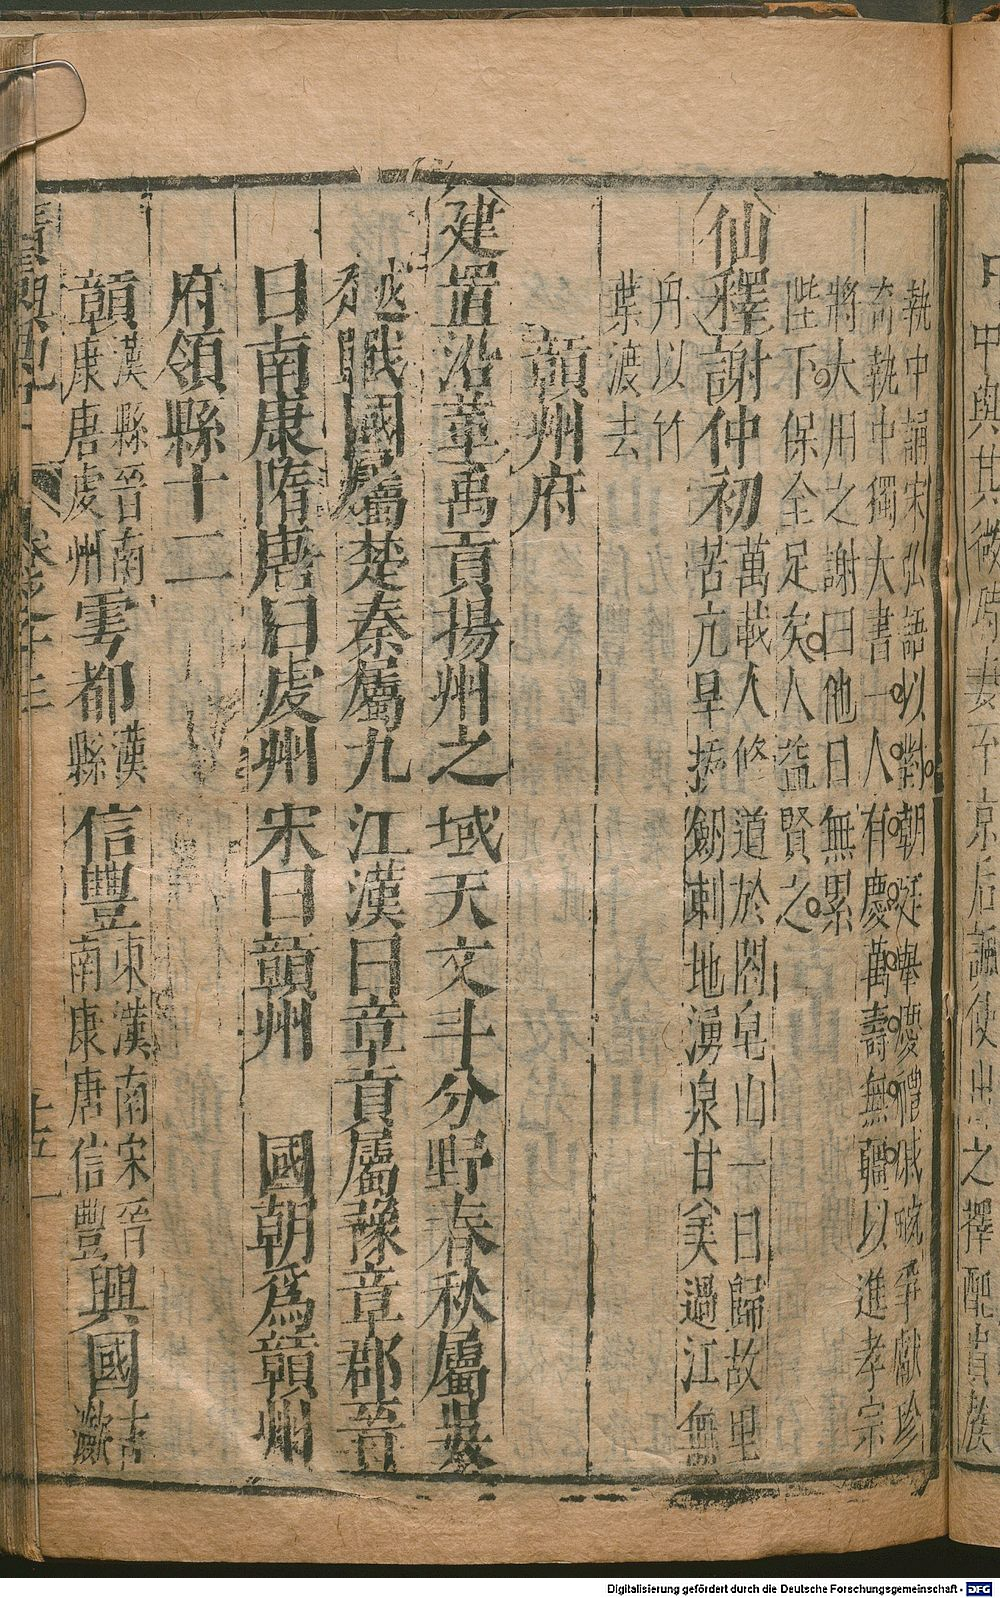 執中誦宋弘語以對朝廷舉慶禮戚畹爭獻珍
奇執中獨大書一人有慶萬壽無疆以進孝宗
將大用之謝曰他日無累
陛下保全足矣人益賢之
仙釋謝仲初萬載人修道於閤皂山一日歸故里
苦亢旱拔劒刺地湧泉甘美過江無
丹以竹
葉渡去
贑州府
建置沿革禹貢揚州之域天文斗分野春秋屬吳
越戰國屬楚秦屬九江漢曰章貢屬豫章郡晉
曰南康隋唐曰虔州宋曰贑州 國朝為贑州
府領縣十二
贑漢縣晉南康唐虔州雩都漢縣信豐東漢南宋晉南康唐信豐興國吉
卷之十三
十五
中與其微時妻至京后諷使出之擇配貴族
Digitalisierung gefördert durch die Deutsche Forschungsgemeinschaft - DFG